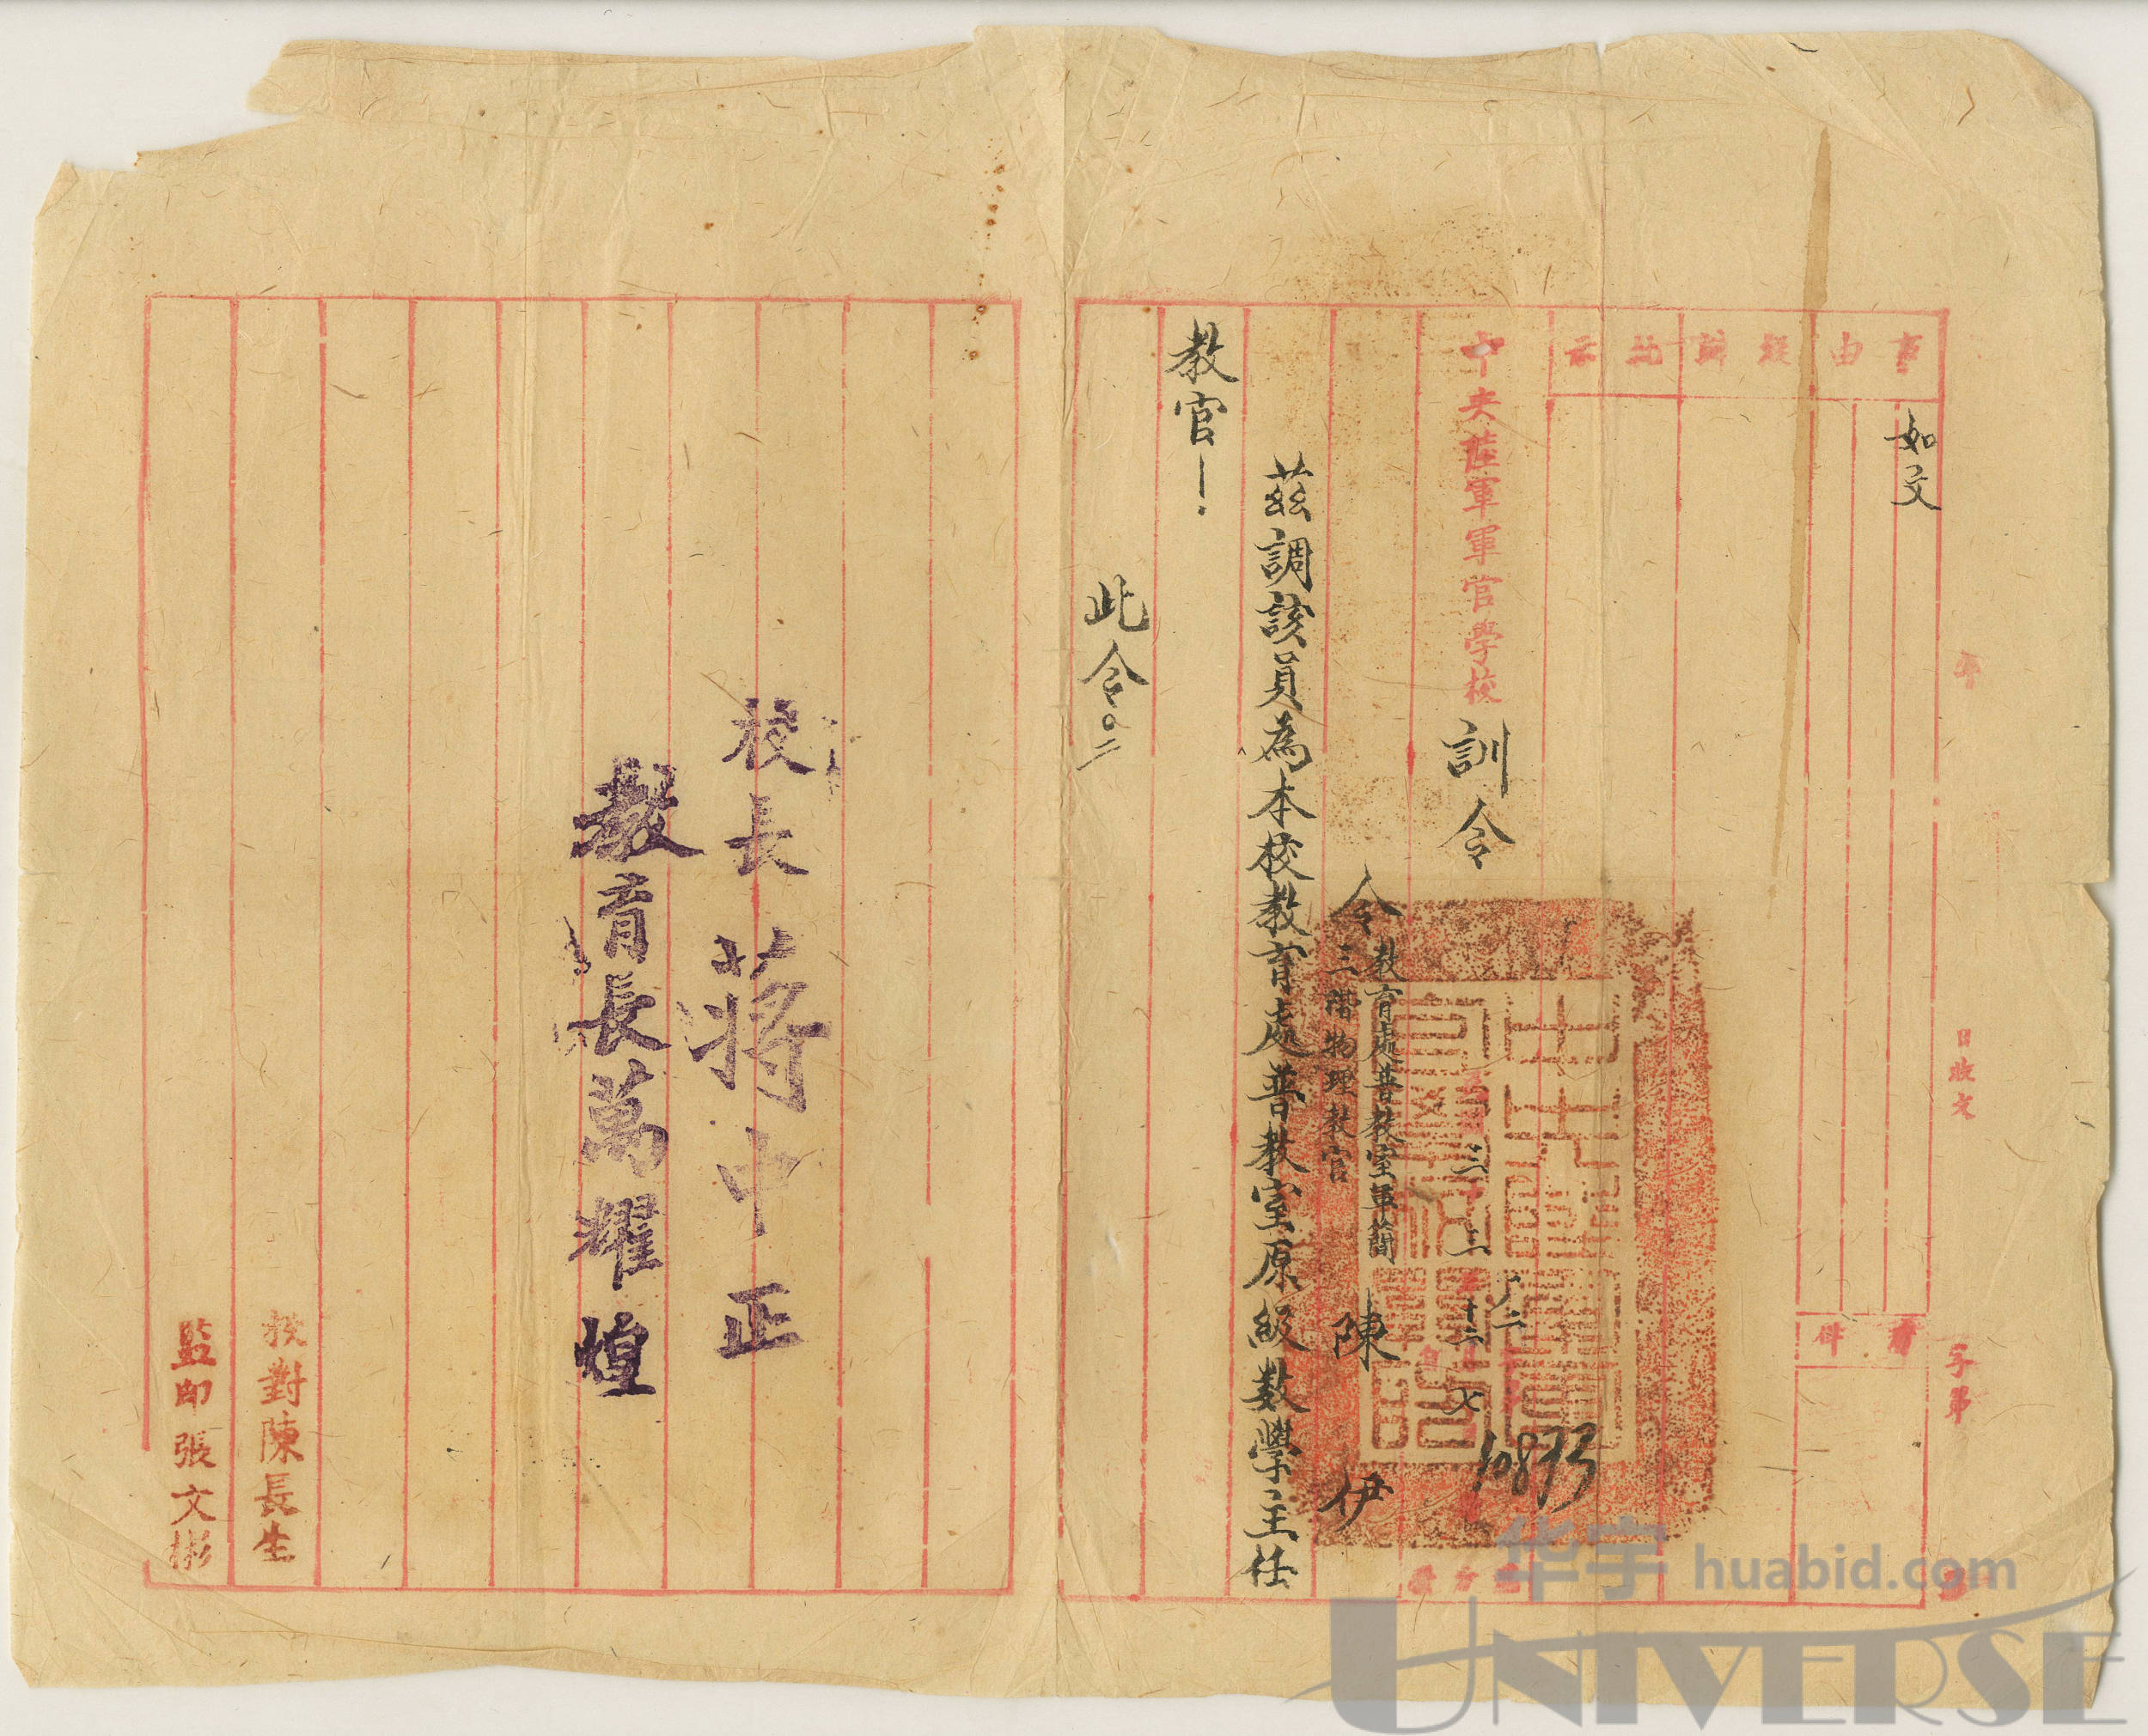 事由
如文
擬辦
批示
中央陸軍軍官學校訓令
10873
令教育處普教室軍簡
三階物理教官
陳伊
茲調該員為本校教育處普教室原級數學主任
教官！
此令。
校長蔣中正
教育長萬耀煌
校對陳長生
監印張文彬
年
日收文
字第
附件
华宇 huabid.com
UNIVERSE